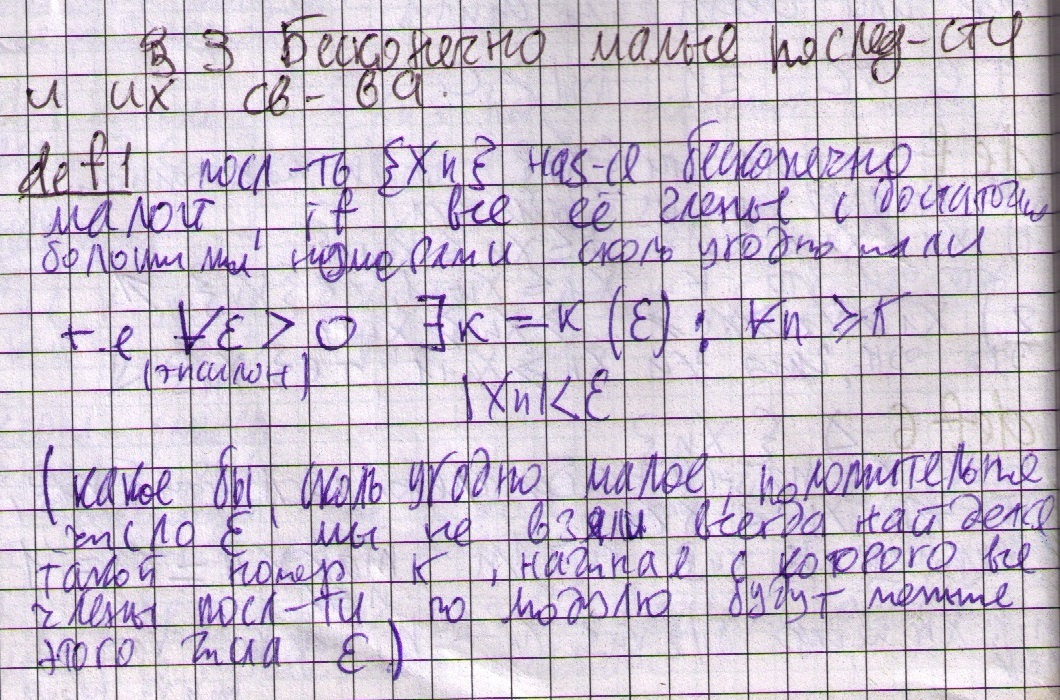 § 3 Бесконечно малые послед-сти
и их св-ва.
def 1 посл-ть {Xn} наз-ся бесконечно
малой, if все её члены с достаточно
большими номерами сколь угодно малы
т.е ∀ε > 0 ∃k = k (ε) : ∀n ≥ k
(эпсилон)
|Xn| < ε
(какое бы сколь угодно малое, положительное
число ε мы не взяли всегда найдется
такой номер k, начиная с которого все
члены посл-ти по модулю будут меньше
этого числа ε)